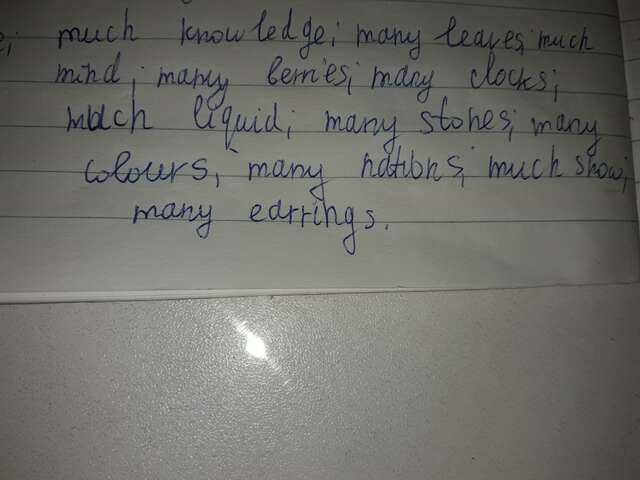 ; much knowledge; many leaves; much
mind; many berries; many clocks;
much liquid; many stones; many
colours; many nations; much snow;
many earrings.